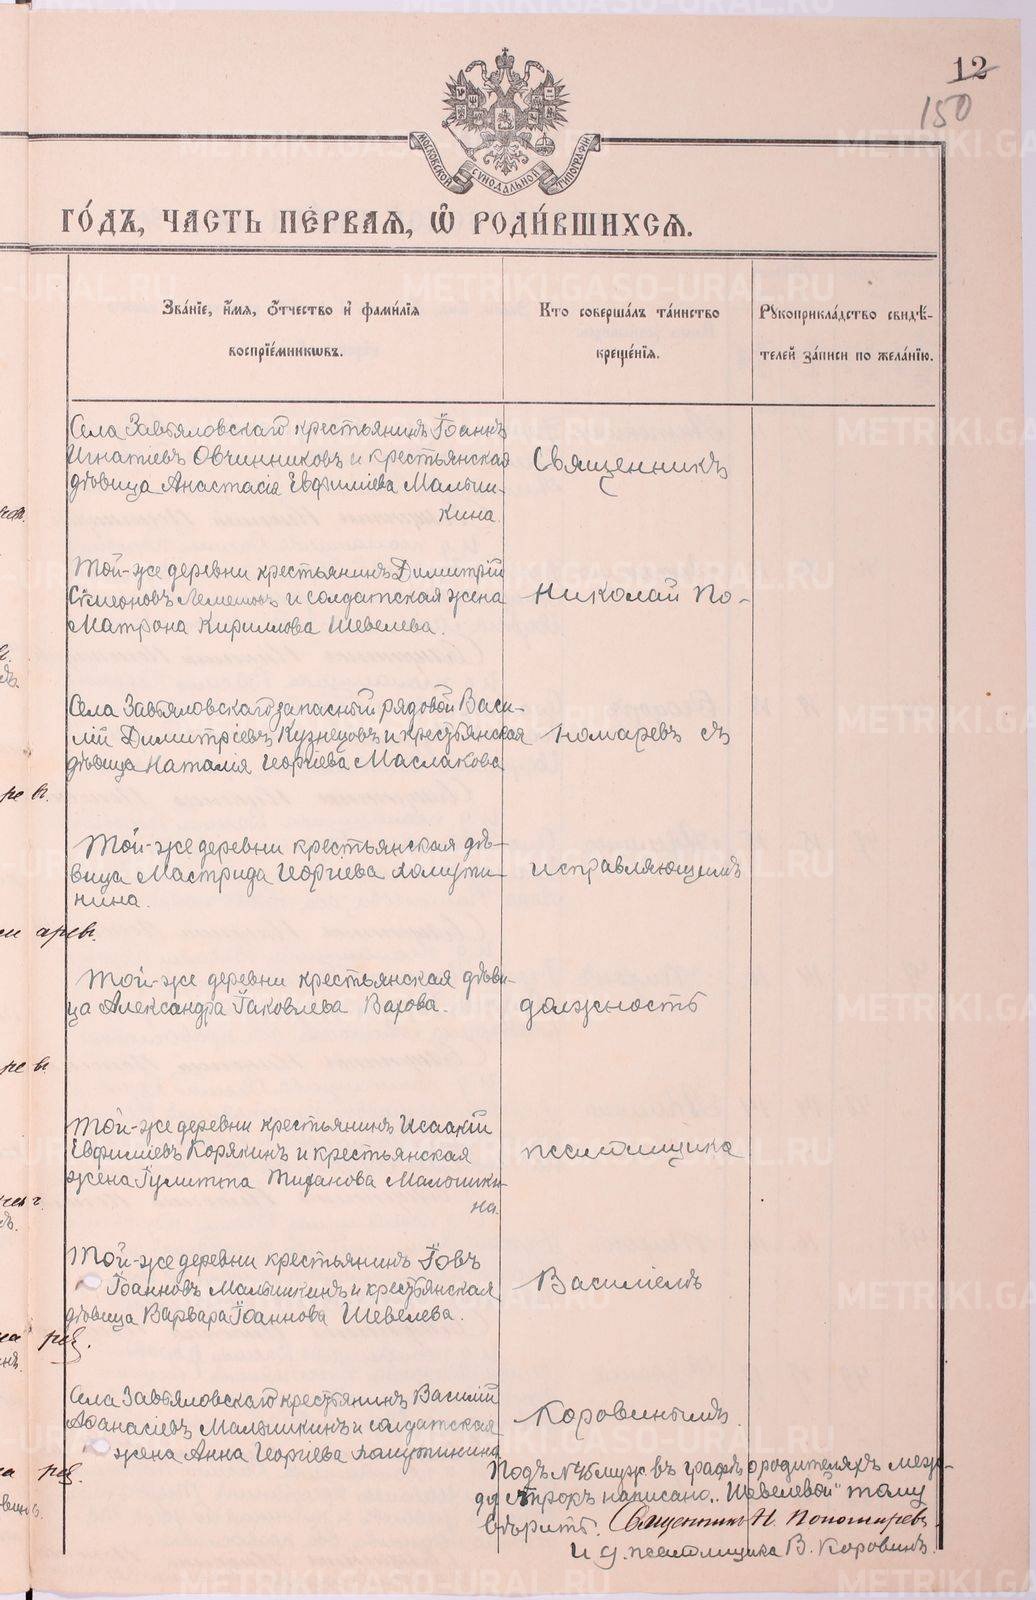 12
150
МОСКОВСКОЙ СѴНОДАЛЬНОЙ ТИПОГРАФІИ
ГО́ДЪ, ЧАСТЬ ПЕ́РВАЯ, Ѽ РОДИ́ВШИХСЯ.
Зва́нїе, и҆́мя, ѻ҆́тчество и҆ фами́лїя
воспрїе́мникωвъ.
Кто соверша́лъ та́инство
креще́нїя.
Рукоприкла́дство свидѣ́-
телей за́писи по жела́нїю.
Села Завьяловскаго крестьянинъ Іоаннъ
Игнатіевъ Овчинниковъ и крестьянская
дѣвица Анастасія Евфиміева Малыш-
кина.
Священникъ
Той-же деревни крестьянинъ Димитрій
Сѵмеоновъ Лемешовъ и солдатская жена
Матрона Кириллова Шевелева.
Николай По-
Села Завьяловскаго запасный рядовой Васи-
лій Димитріевъ Кузнецовъ и крестьянская
дѣвица Наталія Георгіева Маслакова
номаревъ съ
Той-же деревни крестьянская дѣ-
вица Мастрида Георгіева Лапути-
нина.
исправляющимъ
Той-же деревни крестьянская дѣви-
ца Александра Іаковлева Вахова.
должность
Той-же деревни крестьянинъ Исаакій
Евфиміевъ Корякинъ и крестьянская
жена Іулитта Тифанова Малышки-
на.
псаломщика
Той-же деревни крестьянинъ Іовъ
Іоанновъ Малышкинъ и крестьянская
дѣвица Варвара Іоаннова Шевелева.
Василіемъ
Села Завьяловскаго крестьянинъ Василій
Аѳанасіевъ Малышкинъ и солдатская
жена Анна Георгіева Лапутинина
Коровинымъ.
Подъ №45 муж. въ графѣ о родителяхъ меж-
ду строкъ написано „Шевелевой" тому
вѣрить. Священникъ Н. Пономаревъ.
И д. псаломщика В. Коровинъ.
METRIKI.GASO-URAL.RU